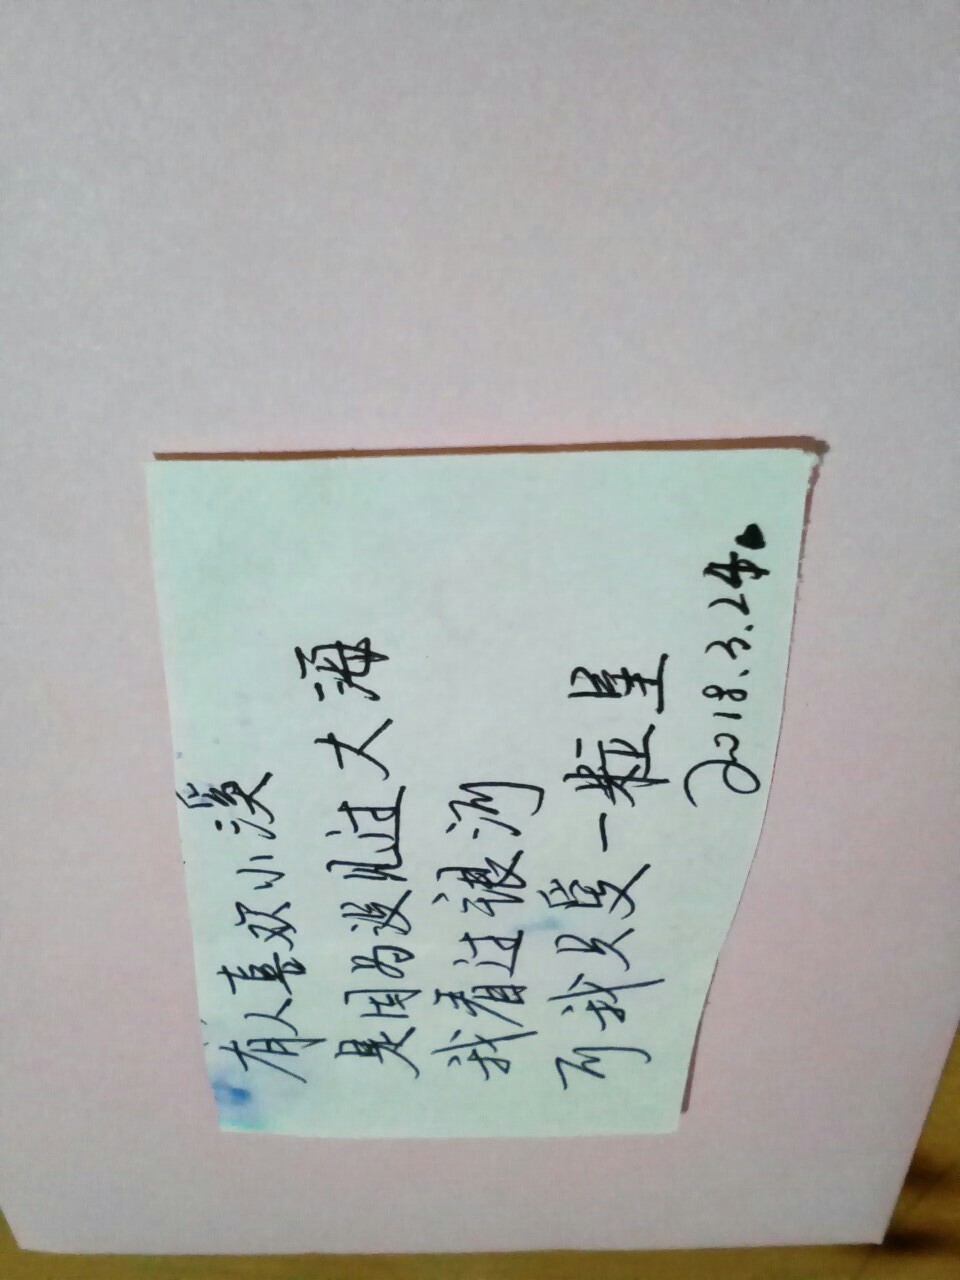 有人喜欢小溪
是因为没见过大海
我看过银河
可我只爱一粒星
2018.3.24